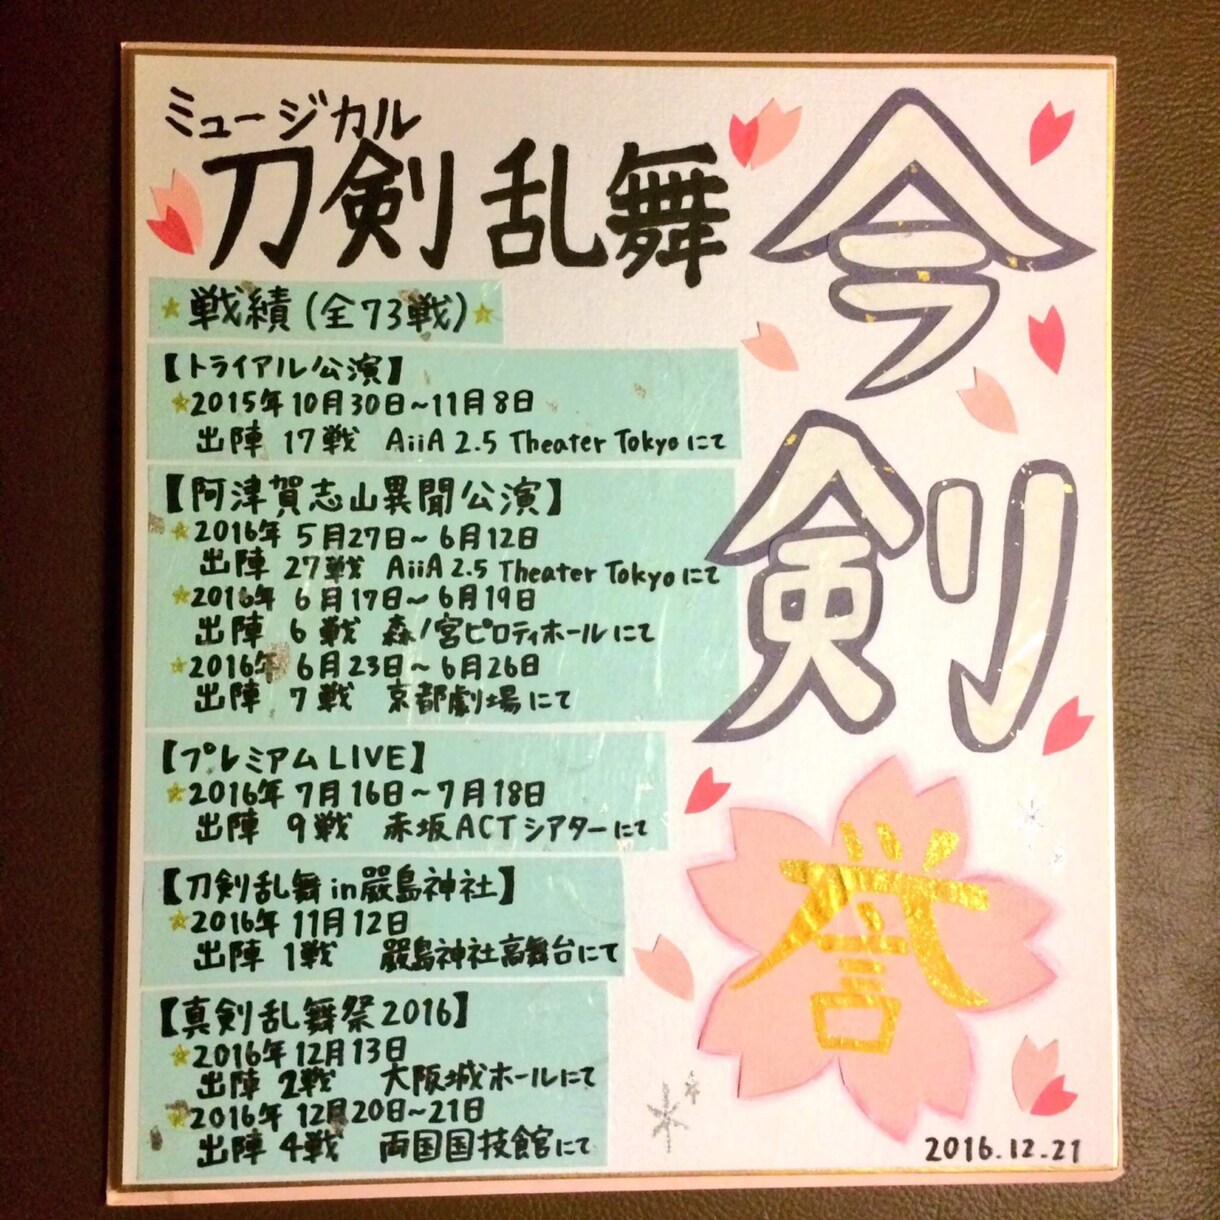 ミュージカル
刀剣乱舞
今剣
戦績(全73戦)
【トライアル公演】
2015年10月30日~11月8日
出陣 17戦 AiiA 2.5 Theater Tokyoにて
【阿津賀志山異聞公演】
2016年 5月27日~6月12日
出陣 27戦 AiiA 2.5 Theater Tokyoにて
2016年 6月17日~6月19日
出陣 6戦 森ノ宮ピロティホールにて
2016年 6月23日~6月26日
出陣 7戦 京都劇場にて
【プレミアムLIVE】
2016年 7月16日~7月18日
出陣 9戦 赤坂ACTシアターにて
【刀剣乱舞in嚴島神社】
2016年11月12日
出陣 1戦 嚴島神社高舞台にて
【真剣乱舞祭2016】
2016年12月13日
出陣 2戦 大阪城ホールにて
2016年 12月20日~21日
出陣 4戦 両国国技館にて
誉
2016.12.21